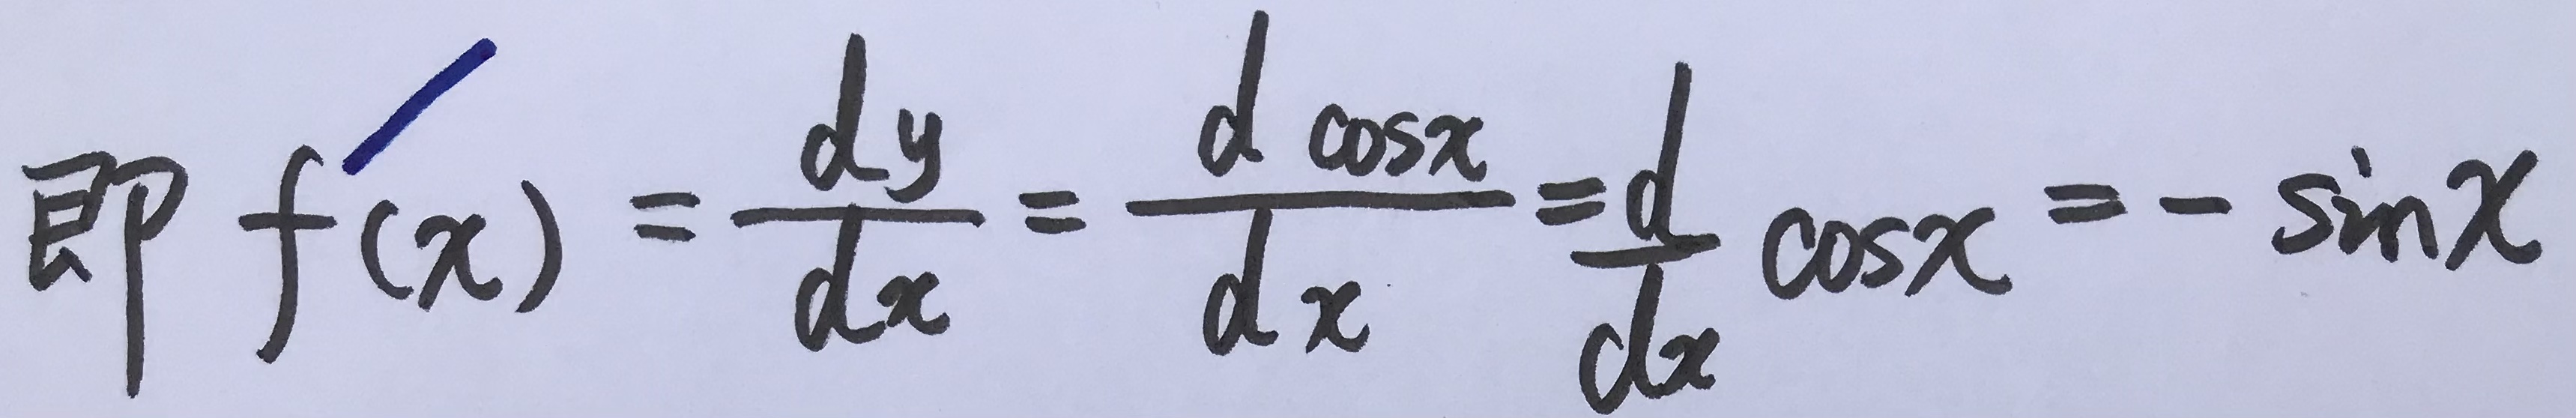 即 f'(x) = dy/dx = d cosx/dx = d/dx cosx = - sinx